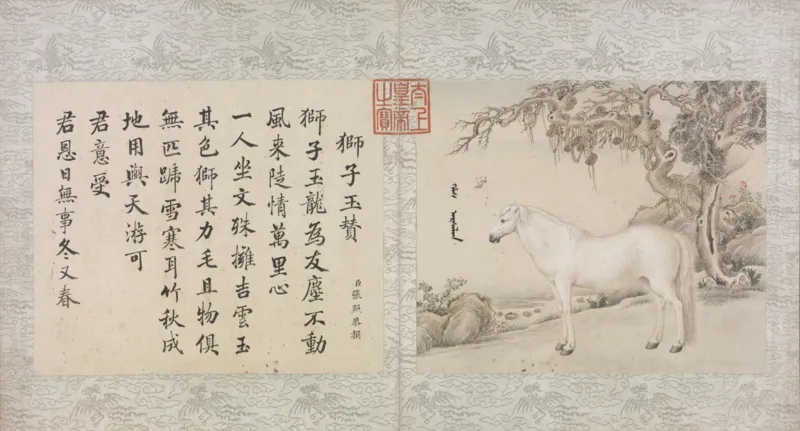 太上
皇帝
之寶
獅子玉贊
臣張照恭撰
獅子玉龍為友塵不動
風來陡情萬里心
一人坐文殊擁吉雲玉
其色獅其力毛且物俱
無匹蹄雪寒耳竹秋成
地用與天游可
君意受
君恩日無事冬又春